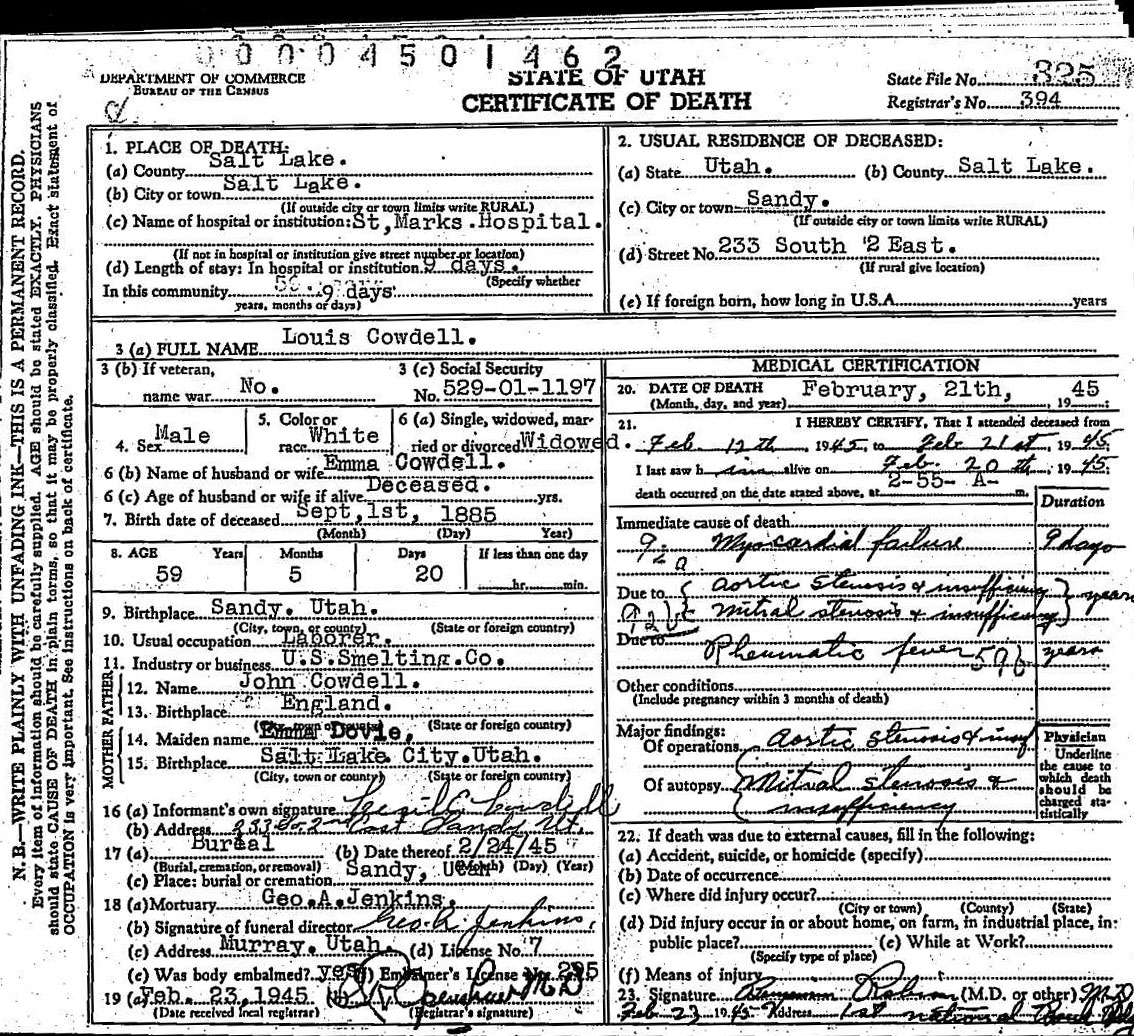 00004501462
DEPARTMENT OF COMMERCE
BUREAU OF THE CENSUS
STATE OF UTAH
CERTIFICATE OF DEATH
State File No. 325
Registrar's No. 394
N. B.—WRITE PLAINLY WITH UNFADING INK—THIS IS A PERMANENT RECORD.
Every item of information should be carefully supplied. AGE should be stated EXACTLY. PHYSICIANS
should state CAUSE OF DEATH in plain terms, so that it may be properly classified. Exact statement of
OCCUPATION is very important. See instructions on back of certificate.
1. PLACE OF DEATH:
(a) County Salt Lake.
(b) City or town Salt Lake.
(If outside city or town limits write RURAL)
(c) Name of hospital or institution: St, Marks. Hospital.
(If not in hospital or institution give street number or location)
(d) Length of stay: In hospital or institution 9 days.
(Specify whether
In this community 9 days
years, months or days)
2. USUAL RESIDENCE OF DECEASED:
(a) State Utah. (b) County Salt Lake.
(c) City or town Sandy.
(If outside city or town limits write RURAL)
(d) Street No. 233 South 2 East.
(If rural give location)
(e) If foreign born, how long in U.S.A. years
3 (a) FULL NAME Louis Cowdell.
3 (b) If veteran, name war No.
3 (c) Social Security No. 529-01-1197
4. Sex Male
5. Color or race White
6 (a) Single, widowed, married or divorced Widowed.
6 (b) Name of husband or wife Emma Cowdell.
6 (c) Age of husband or wife if alive Deceased. yrs.
7. Birth date of deceased Sept, 1st, 1885
(Month) (Day) Year)
8. AGE Years Months Days If less than one day
59 5 20 hr. min.
9. Birthplace Sandy. Utah.
(City, town, or county) (State or foreign country)
10. Usual occupation Laborer.
11. Industry or business U.S.Smelting.Co.
FATHER
12. Name John Cowdell.
13. Birthplace England.
(City, town or county) (State or foreign country)
MOTHER
14. Maiden name Emma Dovie.
15. Birthplace Salt Lake City.Utah.
(City, town or county) (State or foreign country)
16 (a) Informant's own signature Cowdell
(b) Address 233 So. 2 East Sandy Ut.
17 (a) Bureal (b) Date thereof 2/24/45
(Burial, cremation, or removal) (Month) (Day) (Year)
(c) Place: burial or cremation Sandy, Utah
18 (a) Mortuary Geo.A.Jenkins.
(b) Signature of funeral director Geo. A. Jenkins.
(c) Address Murray. Utah. (d) License No. 7
(e) Was body embalmed? yes (f) Embalmer's License No. 295
19 (a) Feb. 23, 1945 (b) M D
(Date received local registrar) (Registrar's signature)
MEDICAL CERTIFICATION
20. DATE OF DEATH February, 21th, 1945;
(Month, day, and year)
21. I HEREBY CERTIFY, That I attended deceased from
Feb 12th, 1945, to Feb 21st, 1945.
I last saw him alive on Feb. 20th, 1945.
death occurred on the date stated above, at 2-55- A- m.
Duration
Immediate cause of death
92a Myocardial failure 9 days
Due to aortic stenosis & insufficiency years
92b mitral stenosis & insufficiency
Due to Rheumatic fever 59b years
Other conditions
(Include pregnancy within 3 months of death)
Major findings:
Of operations Aortic stenosis & insuf
Of autopsy Mitral stenosis &
insufficiency
Physician
Underline
the cause to
which death
should be
charged sta-
tistically
22. If death was due to external causes, fill in the following:
(a) Accident, suicide, or homicide (specify)
(b) Date of occurrence
(c) Where did injury occur?
(City or town) (County) (State)
(d) Did injury occur in or about home, on farm, in industrial place, in
public place? (e) While at Work?
(Specify type of place)
(f) Means of injury
23. Signature (M.D. or other) M D
Feb 23 1945 Address 1st national Bank Bldg